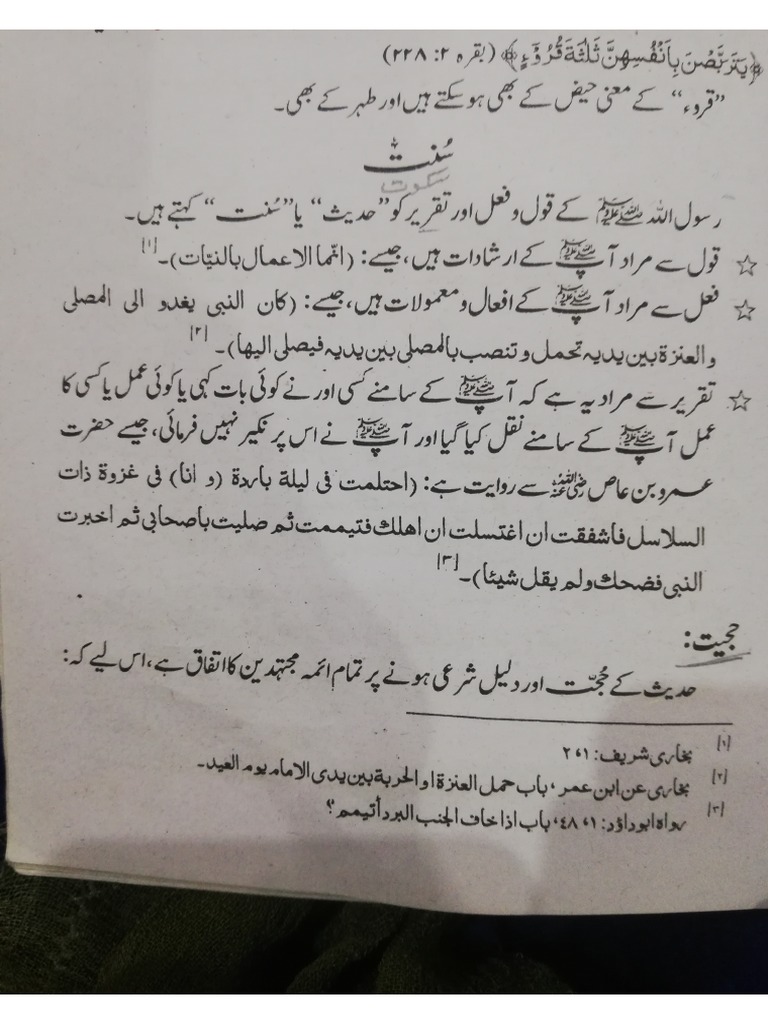 ﴿يَتَرَبَّصْنَ بِاَنْفُسِهِنَّ ثَلٰثَةَ قُرُوْٓءٍ﴾ (بقرہ ۲: ۲۲۸)
”قروء“ کے معنی حیض کے بھی ہوسکتے ہیں اور طہر کے بھی۔
سُنت
سکوت
رسول اللہ ﷺ کے قول و فعل اور تقریر کو ”حدیث“ یا ”سُنت“ کہتے ہیں۔
☆ قول سے مراد آپ ﷺ کے ارشادات ہیں، جیسے: (انّما الاعمال بالنیّات)۔[۱]
☆ فعل سے مراد آپ ﷺ کے افعال و معمولات ہیں، جیسے: (کان النبی یغدو الی المصلی
والعنزة بین یدیه تحمل و تنصب بالمصلی بین یدیه فیصلی الیها)۔[۲]
☆ تقریر سے مراد یہ ہے کہ آپ ﷺ کے سامنے کسی اور نے کوئی بات کہی یا کوئی عمل یا کسی کا
عمل آپ ﷺ کے سامنے نقل کیا گیا اور آپ ﷺ نے اس پر نکیر نہیں فرمائی، جیسے حضرت
عمرو بن عاص رضی اللہ عنہ سے روایت ہے: (احتلمت فی لیلة باردة (و انا) فی غزوة ذات
السلاسل فاشفقت ان اغتسلت ان اهلك فتیممت ثم صلیت باصحابی ثم اخبرت
النبی فضحك ولم یقل شیئا)۔[۳]
حجیت:
حدیث کے حُجّت اور دلیل شرعی ہونے پر تمام ائمہ مجتہدین کا اتفاق ہے، اس لیے کہ:
[۱] بخاری شریف: ۱، ۲
[۲] بخاری عن ابن عمر، باب حمل العنزة او الحربة بین یدی الامام یوم العید۔
[۳] رواه ابو داؤد: ۱، ۴۸، باب اذا خاف الجنب البرد أتیمم؟